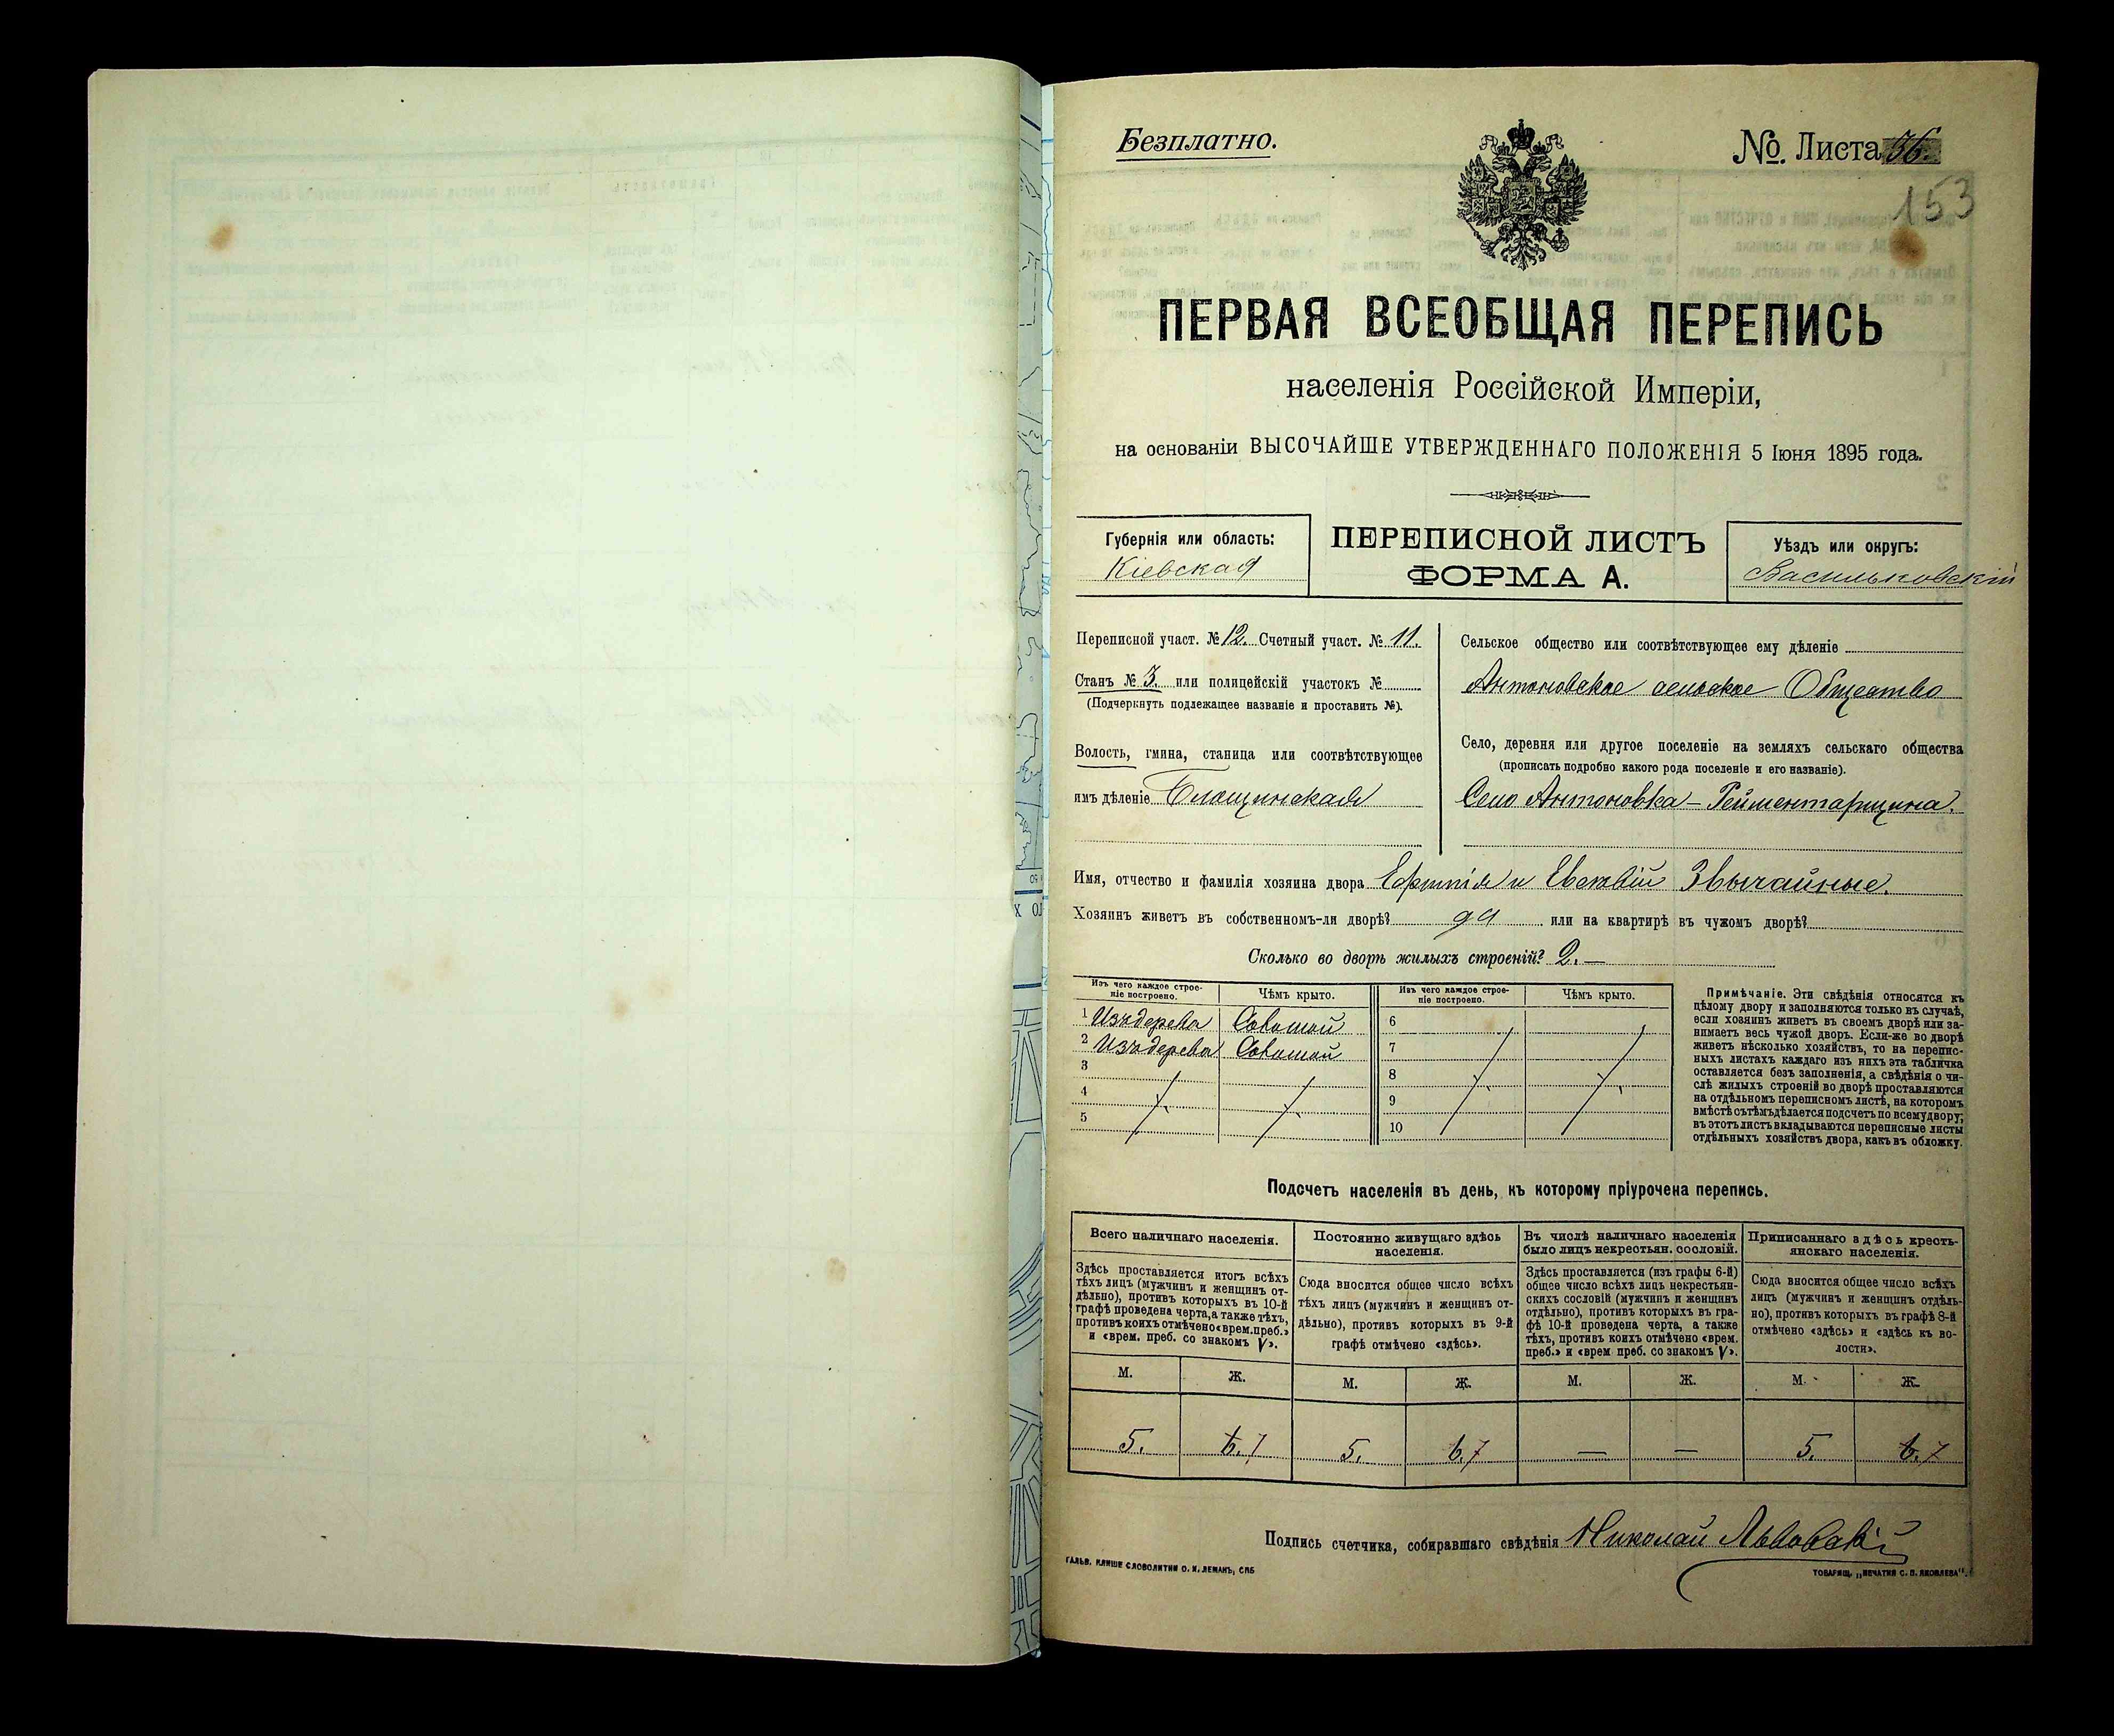 Безплатно.
№ Листа 56.
153
ПЕРВАЯ ВСЕОБЩАЯ ПЕРЕПИСЬ
населенія Россійской Имперіи,
на основаніи ВЫСОЧАЙШЕ УТВЕРЖДЕННАГО ПОЛОЖЕНІЯ 5 Іюня 1895 года.
Губернія или область:
Кіевская
ПЕРЕПИСНОЙ ЛИСТЪ
ФОРМА А.
Уѣздъ или округъ:
Васильковскій
Переписной участ. № 12. Счетный участ. № 11.
Станъ № 3. или полицейскій участокъ №
(Подчеркнуть подлежащее названіе и проставить №).
Волость, гмина, станица или соотвѣтствующее
имъ дѣленіе Блощинская
Сельское общество или соотвѣтствующее ему дѣленіе
Антоновское сельское Общество
Село, деревня или другое поселеніе на земляхъ сельскаго общества
(прописать подробно какого рода поселеніе и его названіе).
Село Антоновка - Рейментарщина.
Имя, отчество и фамилія хозяина двора и Звычайные.
Хозяинъ живетъ въ собственномъ-ли дворѣ? да или на квартирѣ въ чужомъ дворѣ?
Сколько во дворѣ жилыхъ строеній? 2. —
Изъ чего каждое строе-
ніе построено.
Чѣмъ крыто.
Изъ чего каждое строе-
ніе построено.
Чѣмъ крыто.
1 Изъ дерева Соломой 6
2 Изъ дерева Соломой 7
3 8
4 9
5 10
Примѣчаніе. Эти свѣдѣнія относятся къ
цѣлому двору и заполняются только въ случаѣ,
если хозяинъ живетъ въ своемъ дворѣ или за-
нимаетъ весь чужой дворъ. Если-же во дворѣ
живетъ нѣсколько хозяйствъ, то на перепис-
ныхъ листахъ каждаго изъ нихъ эта табличка
оставляется безъ заполненія, а свѣдѣнія о чи-
слѣ жилыхъ строеній во дворѣ проставляются
на отдѣльномъ переписномъ листѣ, на которомъ
вмѣстѣ съ тѣмъ дѣлается подсчетъ по всему двору;
въ этотъ листъ вкладываются переписные листы
отдѣльныхъ хозяйствъ двора, какъ въ обложку.
Подсчетъ населенія въ день, къ которому пріурочена перепись.
Всего наличнаго населенія.
Здѣсь проставляется итогъ всѣхъ
тѣхъ лицъ (мужчинъ и женщинъ от-
дѣльно), противъ которыхъ въ 10-й
графѣ проведена черта, а также тѣхъ,
противъ коихъ отмѣчено «врем. преб.»
и «врем. преб. со знакомъ V».
Постоянно живущаго здѣсь
населенія.
Сюда вносится общее число всѣхъ
тѣхъ лицъ (мужчинъ и женщинъ от-
дѣльно), противъ которыхъ въ 9-й
графѣ отмѣчено «здѣсь».
Въ числѣ наличнаго населенія
было лицъ некрестьян. сословій.
Здѣсь проставляется (изъ графы 6-й)
общее число всѣхъ лицъ некрестьян-
скихъ сословій (мужчинъ и женщинъ
отдѣльно), противъ которыхъ въ гра-
фѣ 10-й проведена черта, а также
тѣхъ, противъ коихъ отмѣчено «врем.
преб.» и «врем преб. со знакомъ V».
Приписаннаго здѣсь кресть-
янскаго населенія.
Сюда вносится общее число всѣхъ
лицъ (мужчинъ и женщинъ отдѣль-
но), противъ которыхъ въ графѣ 8-й
отмѣчено «здѣсь» и «здѣсь къ во-
лости».
М. Ж. М. Ж. М. Ж. М. Ж.
5. 6. 7 5. 6. 7 — — 5. 6. 7
Подпись счетчика, собиравшаго свѣдѣнія Николай Львовскій
ГАЛЬВ. КЛИШЕ СЛОВОЛИТНИ О. И. ЛЕМАНЪ, СПБ
ТОВАРИЩ. „ПЕЧАТНЯ С. П. ЯКОВЛЕВА".